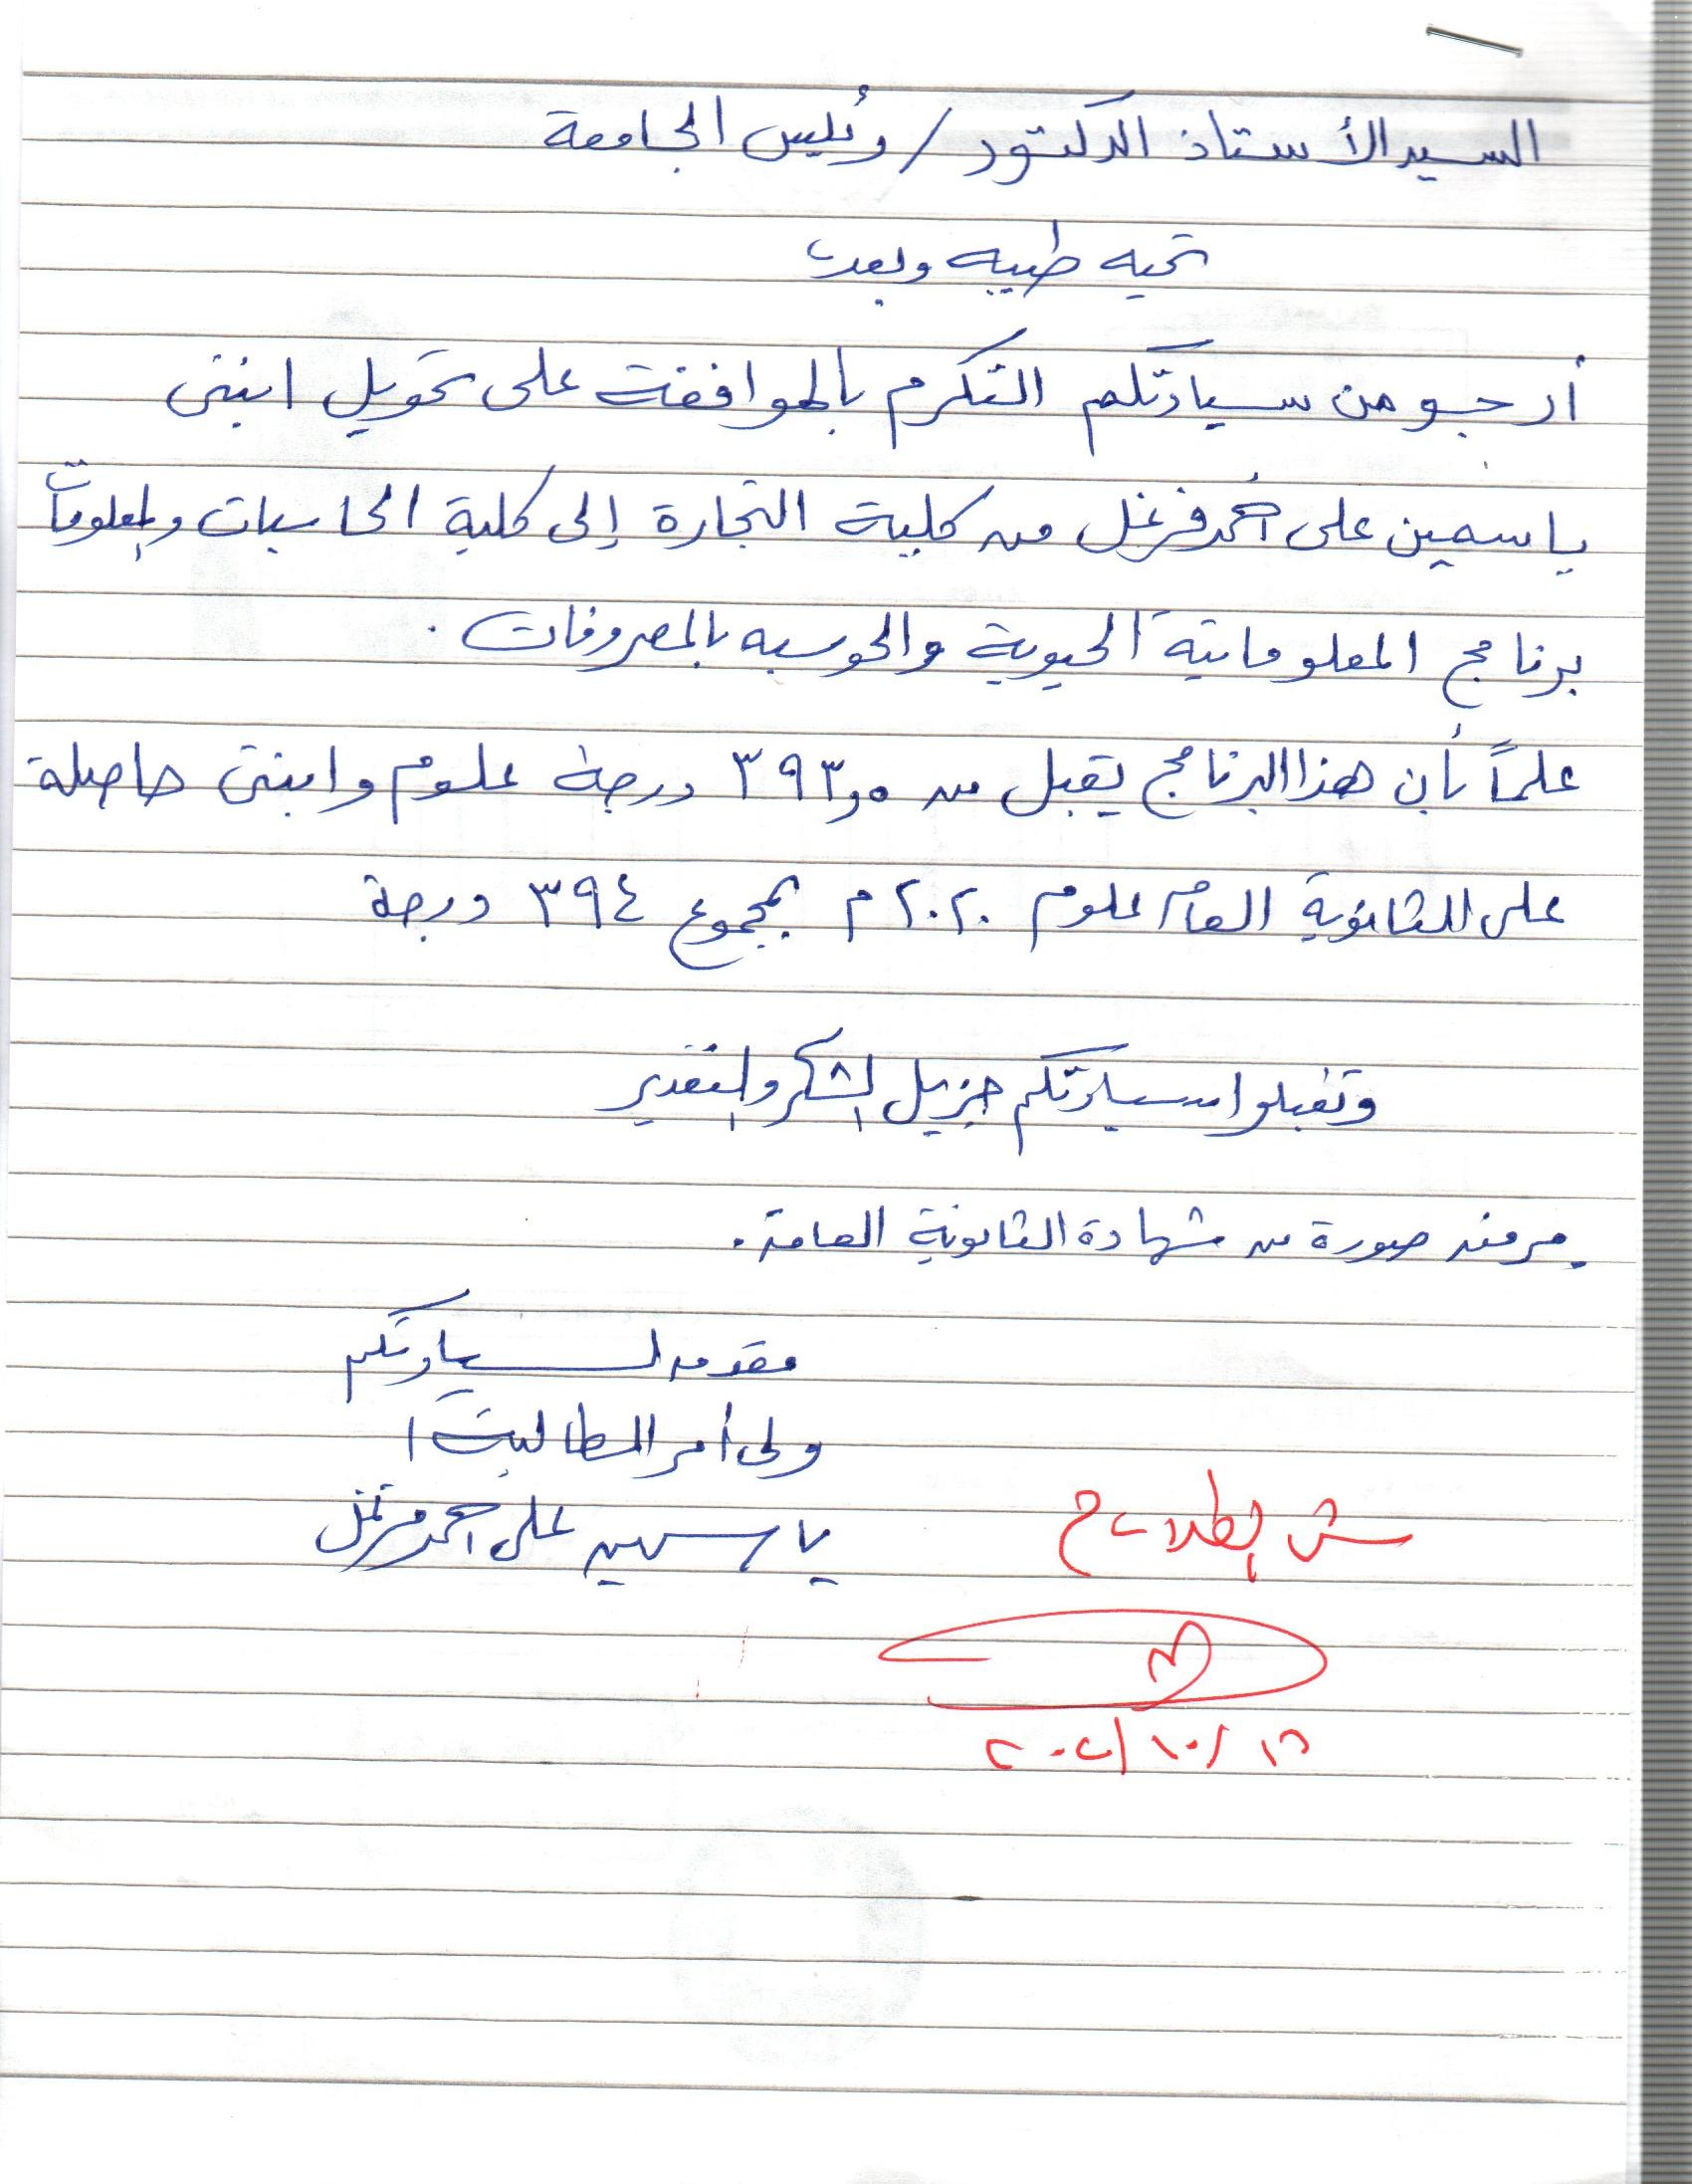 السيد الأستاذ الدكتور / رئيس الجامعة
تحيه طيبه وبعد
أرجو من سيادتكم التكرم بالموافقة على تحويل ابنتى
ياسمين على أحمد فرغل من كلية التجارة إلى كلية الحاسبات والمعلومات
برنامج المعلوماتية الحيوية والحوسبه بالمصروفات .
علماً بأن هذا البرنامج يقبل من ٣٩٣,٥ درجة علوم وابنتى حاصلة
على الثانوية العامة علوم ٢٠٢٠ م بمجموع ٣٩٤ درجة
وتقبلوا سيادتكم جزيل الشكر والتقدير
مرفق صورة من شهادة الثانوية العامة .
مقدمه لسيادتكم
ولى أمر الطالبة /
ياسمين على احمد فرغل
ش الطلاب